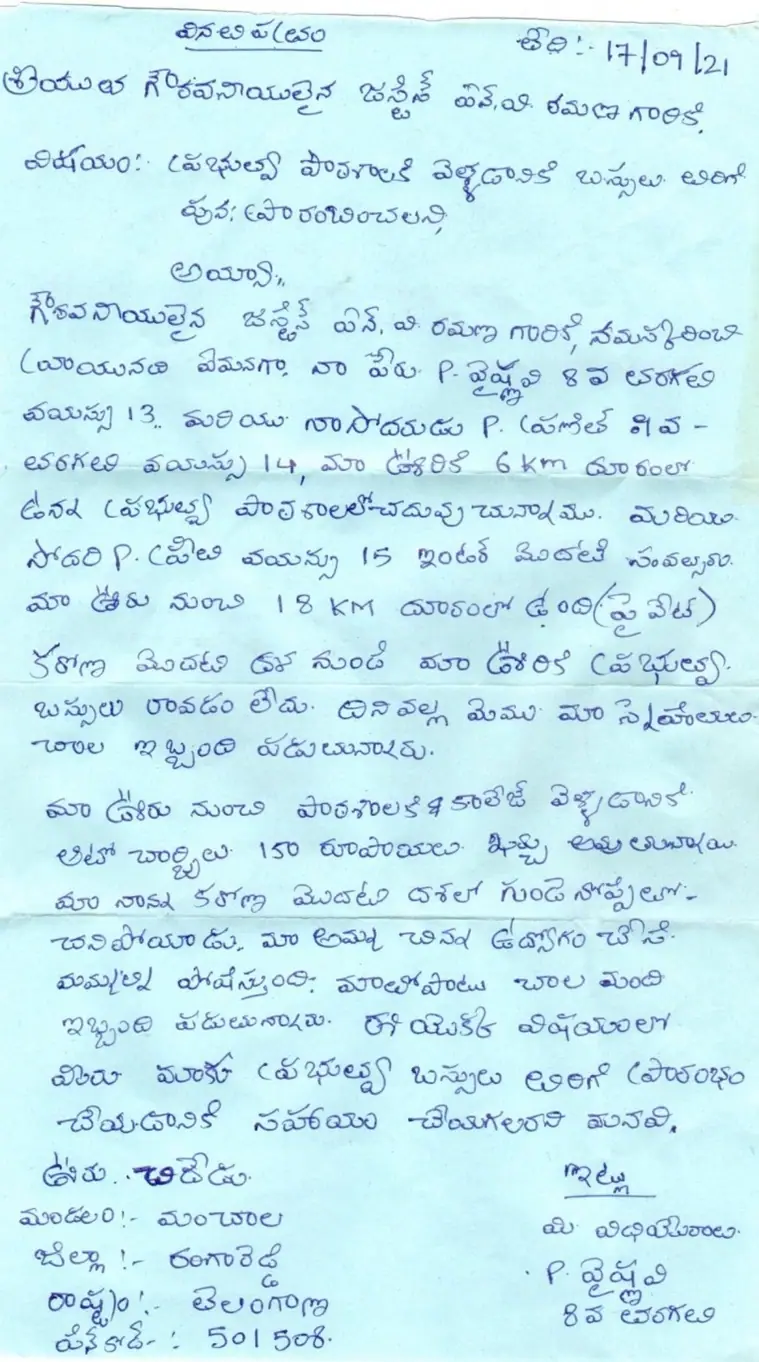 వినతి పత్రం
తేది:- 17/09/21
శ్రీయుత గౌరవనీయులైన జస్టిస్ ఎన్.వి. రమణ గారికి,
విషయం:- ప్రభుత్వ పాఠశాలకి వెళ్ళడానికి బస్సులు తిరిగి
పున: ప్రారంభించాలని,
అయ్యా,,
గౌరవనీయులైన జస్టిస్ ఎన్, వి రమణ గారికి, నమస్కరించి
వ్రాయునది ఏమనగా, నా పేరు P. వైష్ణవి 8 వ తరగతి
వయస్సు 13, మరియు నా సోదరుడు P. ప్రణీత్ 9 వ -
తరగతి వయస్సు 14, మా ఊరికి 6 km దూరంలో
ఉన్న ప్రభుత్వ పాఠశాలలో చదువు చున్నాము. మరియు
సోదరి P. ప్రీతి వయస్సు 15 ఇంటర్ మొదటి సంవత్సరం.
మా ఊరు నుంచి 18 KM దూరంలో ఉంది (ప్రైవేట్)
కరోణ మొదటి దశ నుండి మా ఊరికి ప్రభుత్వ
బస్సులు రావడం లేదు. దీని వల్ల మేము మా స్నేహితులు
చాల ఇబ్బంది పడుతున్నారు.
మా ఊరు నుంచి పాఠశాలకి & కాలేజ్ వెళ్ళడానికి
ఆటో చార్జీలు 150 రూపాయలు ఖర్చు అవుతున్నాయి.
మా నాన్న కరోణ మొదటి దశలో గుండె నొప్పితో -
చనిపోయాడు. మా అమ్మ చిన్న ఉద్యోగం చేసి
మమ్మల్ని పోషిస్తుంది. మాతోపాటు చాల మంది
ఇబ్బంది పడుతున్నారు. ఈ యొక్క విషయంలో
మీరు మాకు ప్రభుత్వ బస్సులు తిరిగి ప్రారంభం
చేయడానికి సహాయం చేయగలరని మనవి.
ఊరు. :- చిదేడు.
మండలం:- మంచాల
జిల్లా :- రంగారెడ్డి
రాష్ట్రం :- తెలంగాణ
పిన్ కోడ్- : 501508.
ఇట్లు
మి విధేయురాలు.
P. వైష్ణవి
8 వ తరగతి